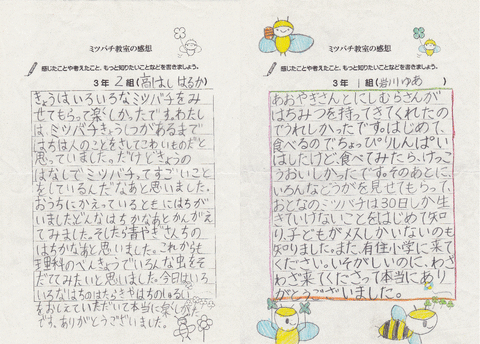 ミツバチ教室の感想
感じたことや考えたこと、もっと知りたいことなどを書きましょう。
3年 2組(高はし はるか)
きょうはいろいろなミツバチをみ
せてもらって楽しかったです。わたし
は、ミツバチきょうしつがあるまで
はちは人のことをさしてこわいものだと
思っていました。だけどきょうの
はなしでミツバチってすごいこと
をしているんだなあと思いました。
おうちにかえっているともにはちが
いましたどんなはちかなあとかんがえ
てみました。そしたら青やぎさんちの
はちかなあと思いました。これからも
理科のべんきょうでいろんな虫をそ
だててみたいと思いました。今日はいろ
いろなはちのはたらきやはちのしゅるい
をおしえていただいて本当に楽しかった
です、ありがとうございました。
ミツバチ教室の感想
感じたことや考えたこと、もっと知りたいことなどを書きましょう。
3年 1組(岩川ゆあ)
あおやぎさんとにしむらさんが
はちみつを持ってきてくれたの
でうれしかったです。はじめて、
食べるのでちょっぴりしんぱい
はしたけど、食べてみたら、けっこ
うおいしかったです。そのあとに、
いろんなどうがを見せてもらって、
おとなのミツバチは30日しか生
きていけないことをはじめて知
り、子どもがメスしかいないのも
知りました。また、有住小学に来て
ください。いそがしいのに、わざ
わざ来てくださって本当にあり
がとうございました。